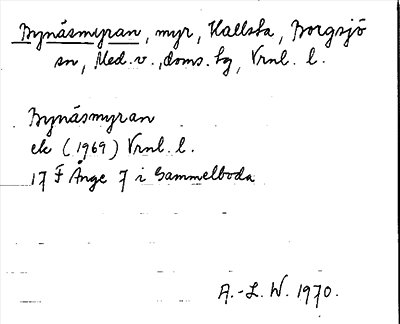 Bynäsmyran, myr, Hallsta, Borgsjö
sn, Med. v., doms. hg, Vrnl. l.
Bynäsmyran
ek (1969) Vrnl. l.
17 F Ånge 7 i Gammelboda
A.-L. W. 1970.